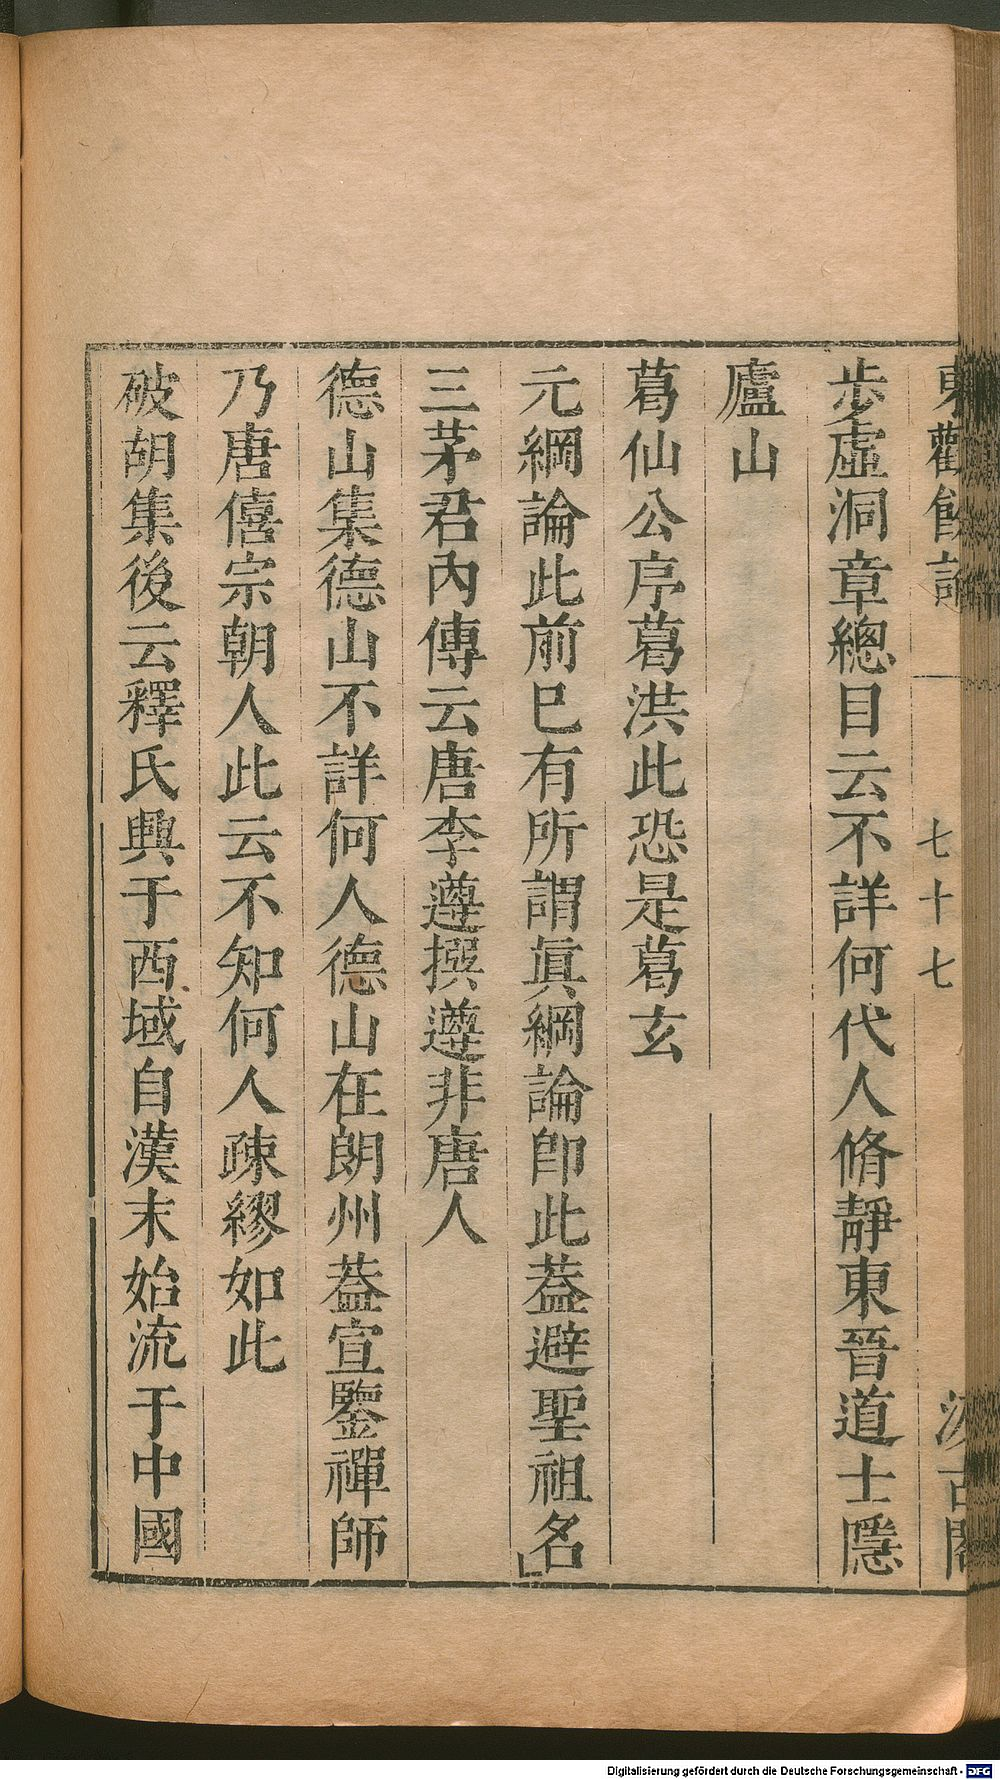 東觀餘論
七十七
汲古閣
步虛洞章總目云不詳何代人脩靜東晉道士隱
廬山
葛仙公序葛洪此恐是葛玄
元綱論此前巳有所謂眞綱論卽此葢避聖祖名
三茅君內傳云唐李遵撰遵非唐人
德山集德山不詳何人德山在朗州葢宣鑒禪師
乃唐僖宗朝人此云不知何人疎繆如此
破胡集後云釋氏興于西域自漢末始流于中國
Digitalisierung gefördert durch die Deutsche Forschungsgemeinschaft - DFG